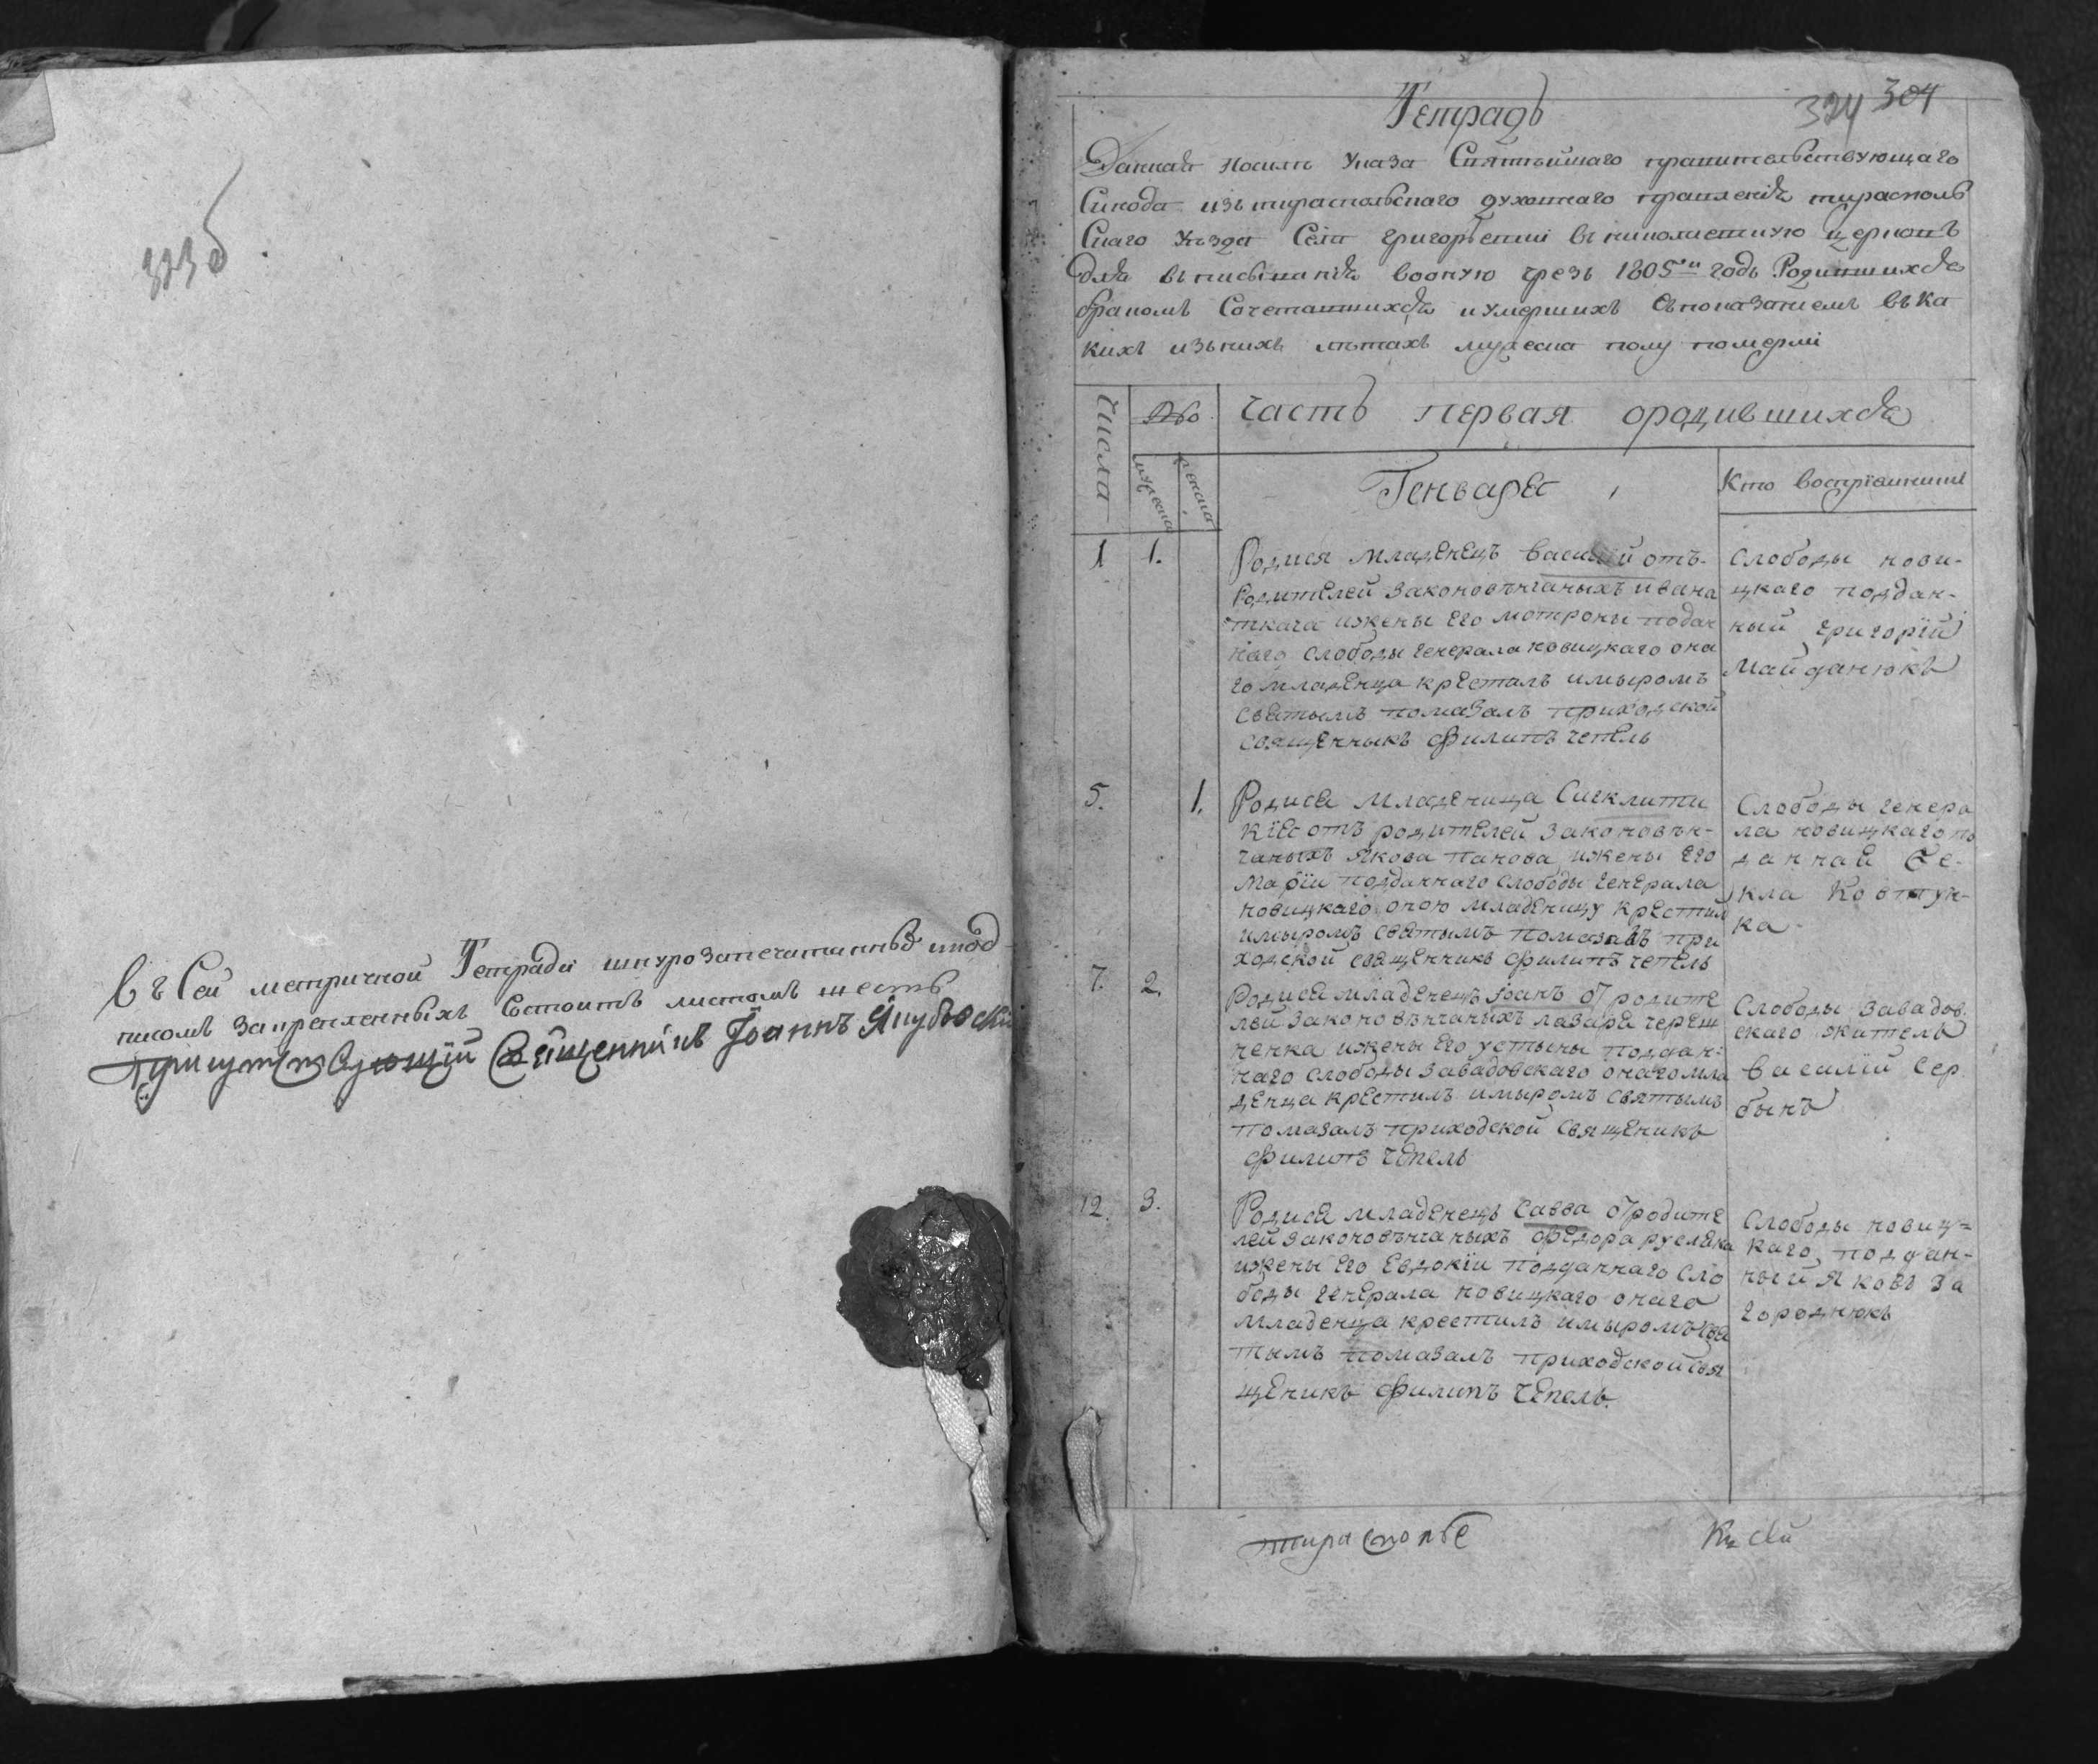 323б
Въ Сей метричной Тетради шнурозапечатанной и под
писомъ Запрепленныхъ Состоитъ листомъ шесть
Присутствующій Священникъ Іоаннъ Якубовскій
324 304
Тетрадь
Данная Посилѣ Указа Святѣйшаго правительствующаго
Синода изъ тираспольскаго духовнаго правленія тирасполь
Скаго Уѣзда Села Григорьевки въ николаевскую Церковь
для вписыванія во оную чрезъ 1805й годъ Родившихся
бракомъ Сочетавшихся и умершихъ Съ показаніемъ въ ка
кихъ изъ нихъ лѣтахъ мужеска полу померли
Числа
часть первая о родившихся
мужеска
женска
Генваря
Кто воспріемники
1 1.
Родися младенецъ василій отъ
родителей законовѣнчаныхъ ивана
ткача и жены его мотроны подан
наго слободы генерала новицкаго она
го младенца крестилъ и мыромъ
святымъ помазалъ приходской
священныкъ филипъ чепель
Слободы нови-
цкаго поддан-
ный григорій
майданюкъ
5. 1.
Родися младеница Сигклити
кія отъ родителей законовѣн-
чаныхъ якова панова и жены его
маріи подданнаго слободы генерала
новицкаго оною младеницу крестил
и мыромъ святымъ помазалъ при
ходской священникъ филипъ чепель
Слободы генера
ла новицкаго по
данная Ѳе-
кла Ковтун-
ка
7. 2.
Родися младенецъ Іоанъ от родите
лей законовѣнчаныхъ лазаря терещ
ченка и жены его устыны поддан
наго слободы завадовскаго онаго мла
денца крестилъ и мыромъ святымъ
помазалъ приходской священикъ
филипъ чепель
Слободы завадов
скаго житель
василій Сер
бынъ
12. 3.
Родися младенецъ савва от родите
лей законовѣнчаныхъ федора русляка
и жены его Евдокіи подданнаго сло
боды генерала новицкаго онаго
младенца крестилъ и мыромъ свя
тымъ помазалъ приходской свя
щеникъ филипъ чепель.
Слободы новиц=
каго поддан-
ный яковъ за
городнюкъ
тирасполье